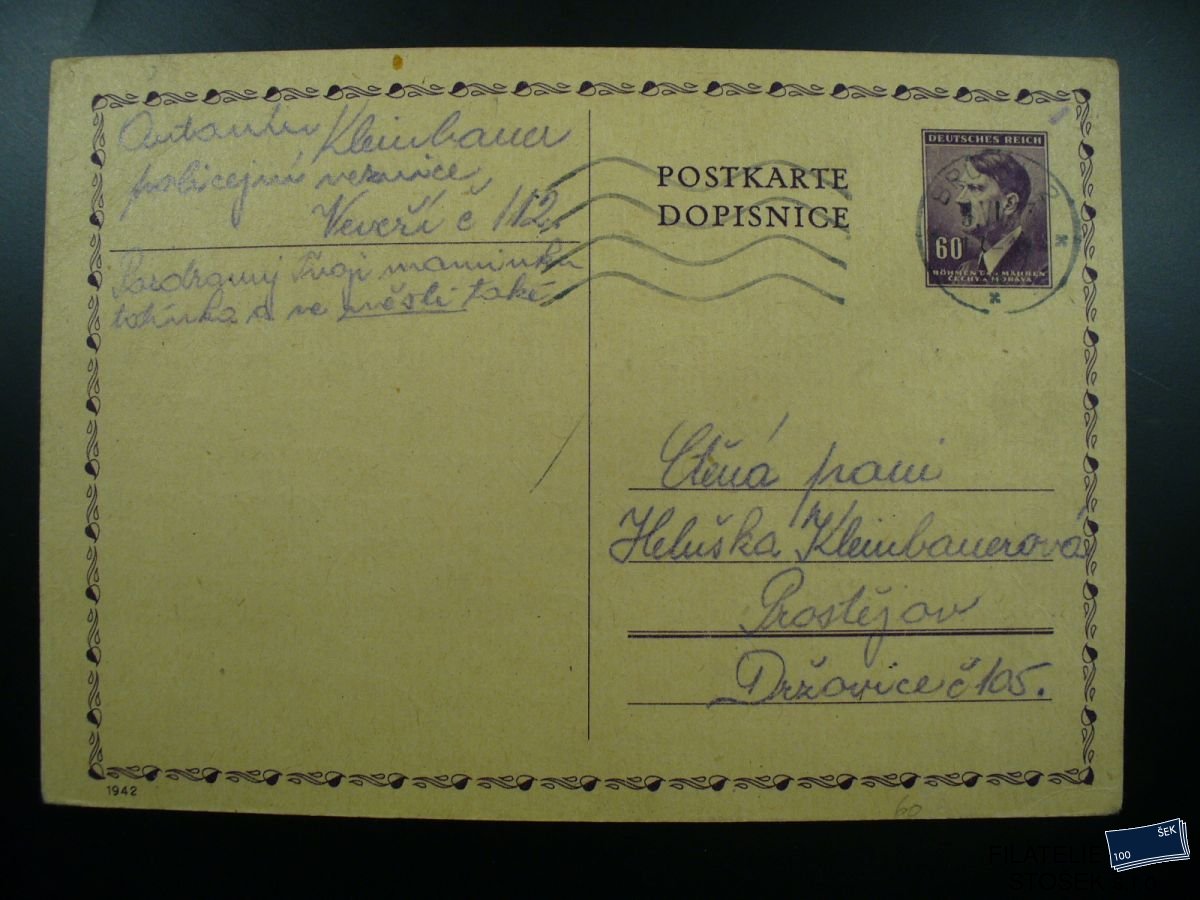 Antonín Kleinbauer
policejní věznice
Veveří č 112
Pozdravuj Tvoji maminku
tatínka a ve městě také
POSTKARTE
DOPISNICE
DEUTSCHES REICH
60
BÖHMEN U. MÄHREN
ČECHY A MORAVA
Ctěná paní
Heluška Kleinbauerová
Prostějov
Držovice č 105.
1942
60
ŠEK
100
FILATELIE
STOŠEK